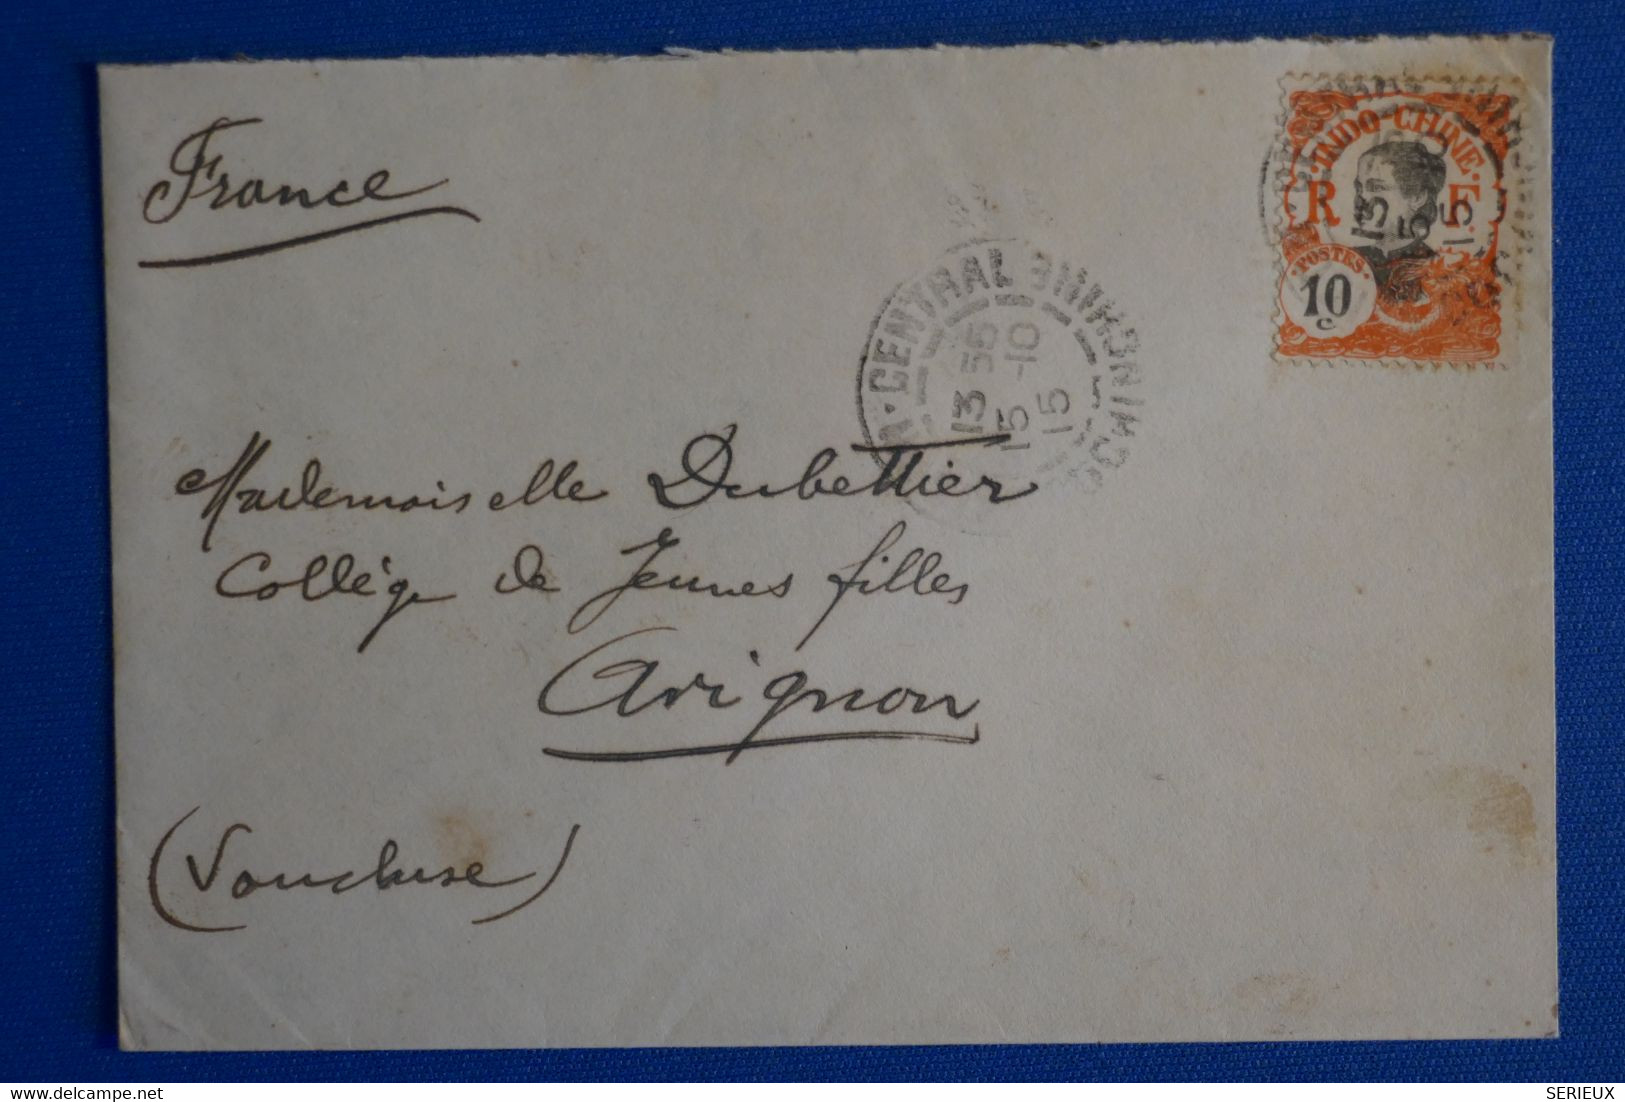 France
INDO-CHINE
R F
POSTES
10
c
CENTRAL COCHINCHINE
13 55
15 -10
15
Mademoiselle Dubettier
Collège de Jeunes filles
Avignon
(Vaucluse)
delcampe.net
SERIEUX